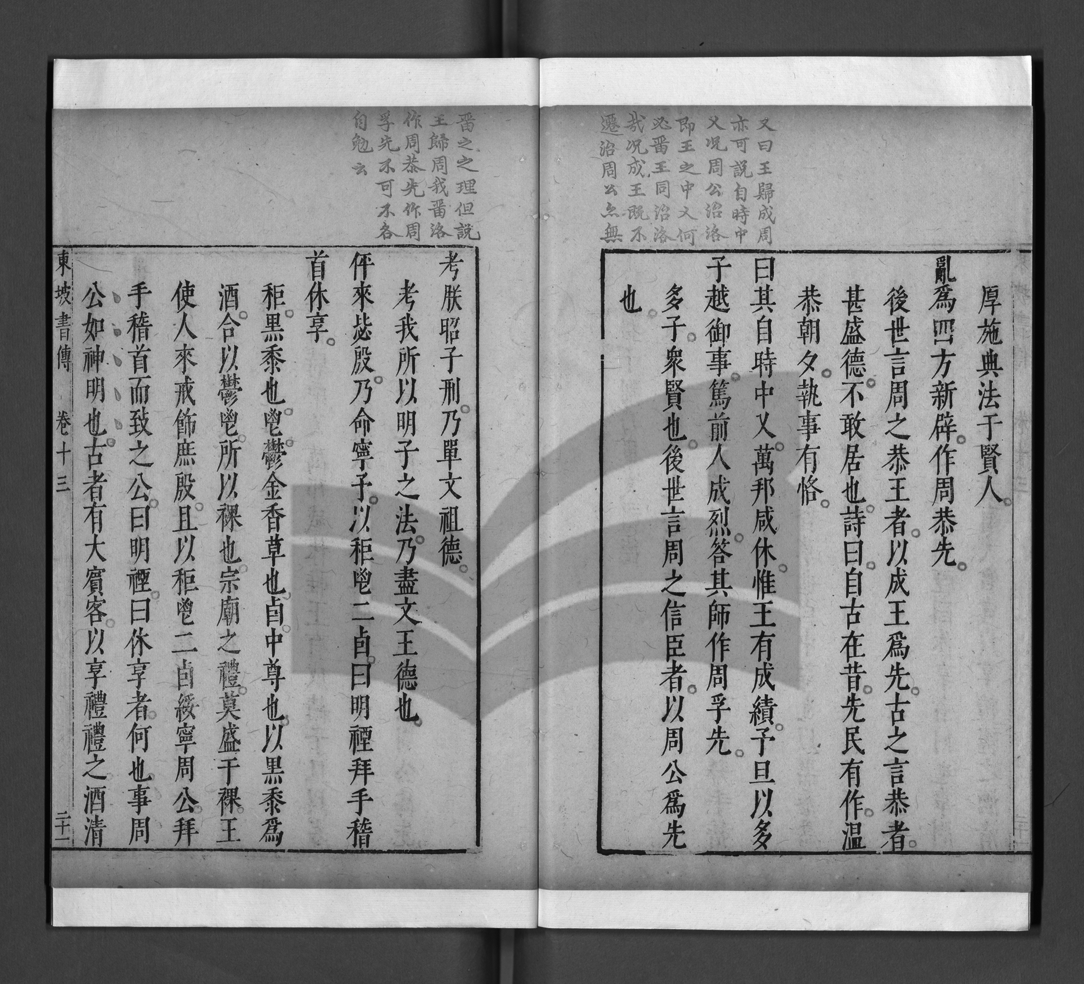 又曰王歸成周
亦可說自時中
乂况周公治洛
即王之中乂何
必畱王同治洛
哉况成王旣不
遷治周公亦無
厚施典法于賢人。
亂爲四方新辟。作周恭先。
後世言周之恭王者。以成王爲先。古之言恭者。
甚盛德。不敢居也。詩曰。自古在昔。先民有作。溫
恭朝夕。執事有恪。
曰其自時中乂。萬邦咸休。惟王有成績。予旦以多
子越御事。篤前人成烈。答其師。作周孚先。
多子。衆賢也。後世言周之信臣者。以周公爲先
也。
畱之之理但說
王歸周我畱洛
作周恭先作周
孚先不可不各
自勉云
考朕昭子刑。乃單文祖德。
考我所以明子之法。乃盡文王德也。
伻來毖殷。乃命寧予。以秬鬯二卣。曰明禋拜手稽
首休享。
秬。黑黍也。鬯。鬱金香草也。卣。中尊也。以黑黍爲
酒。合以鬱鬯。所以祼也。宗廟之禮。莫盛于祼。王
使人來戒飾庶殷。且以秬鬯二卣綏寧周公。拜
手稽首而致之公。曰明禋。曰休享者。何也。事周
公如神明也。古者有大賓客。以享禮禮之。酒清
東坡書傳 卷十三 二十一